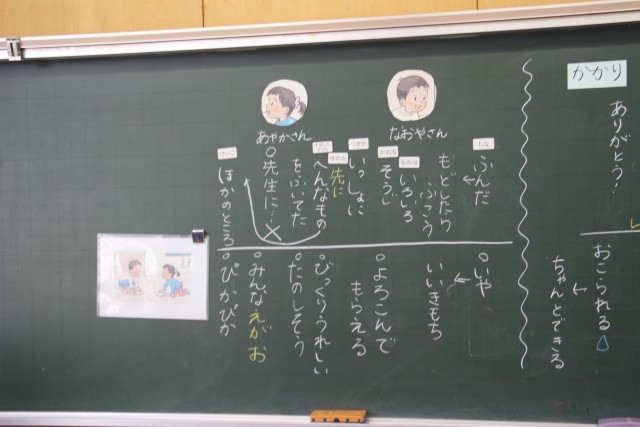 かかり
ありがとう！
おこられる
←ちゃんとできる
なおやさん
あやかさん
ふんだ
←もどしたら
いろいろ
そうじ
いっしょに
先に
へんなもの
をふいてた
○先生に…
ほかのところ
○いや
←いいきもち
○よろこんで
もらえる
○びっくりうれしい
○たのしそう
○みんなえがお
○ぴかぴか